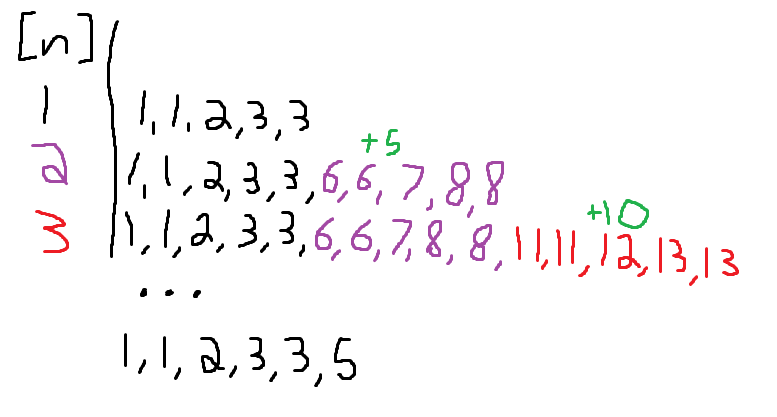 [n]
1 1,1,2,3,3
+5
2 1,1,2,3,3,6,6,7,8,8
+10
3 1,1,2,3,3,6,6,7,8,8,11,11,12,13,13
...
1,1,2,3,3,5